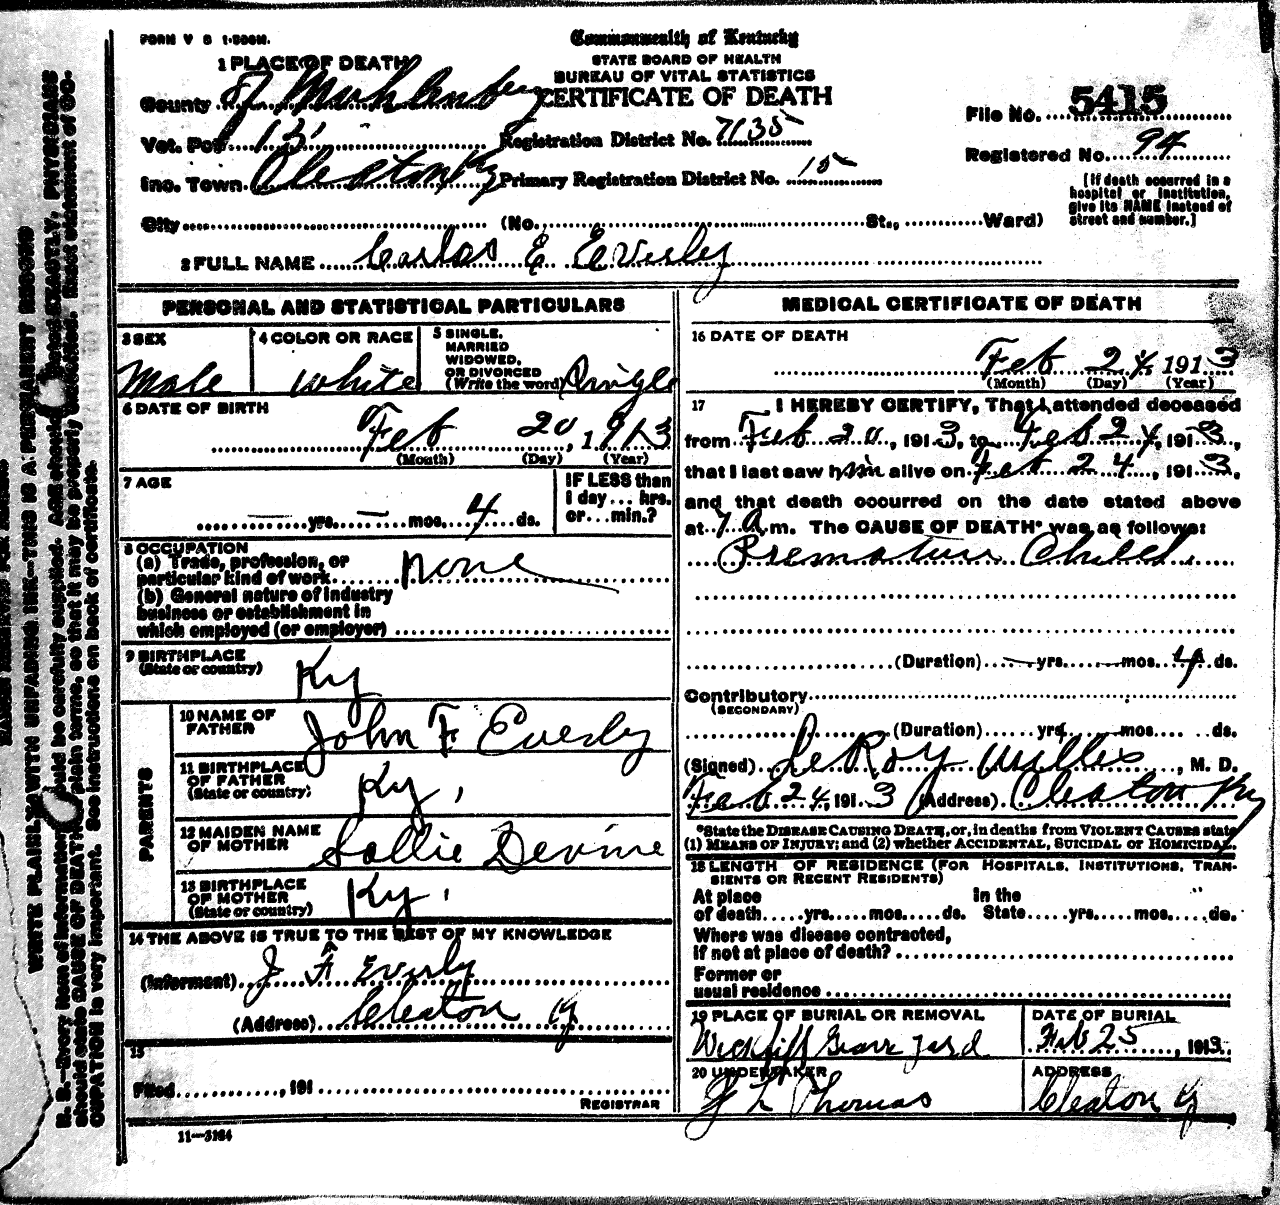 FORM V S 1-500M.
Commonwealth of Kentucky
STATE BOARD OF HEALTH
BUREAU OF VITAL STATISTICS
CERTIFICATE OF DEATH
1 PLACE OF DEATH
County Muhlenberg
Vot. Pct. 13
Registration District No. 7135
File No. 5415
Inc. Town Cleaton Ky
Primary Registration District No. 15
Registered No. 94
City (No. St., Ward)
[If death occurred in a hospital or institution, give its NAME instead of street and number.]
2 FULL NAME Carlos E Everley
PERSONAL AND STATISTICAL PARTICULARS
3 SEX
Male
4 COLOR OR RACE
White
5 SINGLE, MARRIED, WIDOWED, OR DIVORCED (Write the word)
Single
6 DATE OF BIRTH
Feb 20, 1913
(Month) (Day) (Year)
7 AGE
— yrs. — mos. 4 ds.
IF LESS than 1 day... hrs. or... min.?
8 OCCUPATION
(a) Trade, profession, or particular kind of work none
(b) General nature of industry business or establishment in which employed (or employer)
9 BIRTHPLACE
(State or country)
Ky
PARENTS
10 NAME OF FATHER
John F. Everly
11 BIRTHPLACE OF FATHER
(State or country)
Ky,
12 MAIDEN NAME OF MOTHER
Sallie Devine
13 BIRTHPLACE OF MOTHER
(State or country)
Ky,
14 THE ABOVE IS TRUE TO THE BEST OF MY KNOWLEDGE
(Informant) J F Everly
(Address) Cleaton Ky
15
Filed , 191
REGISTRAR
11—3184
MEDICAL CERTIFICATE OF DEATH
16 DATE OF DEATH
Feb 24, 1913
(Month) (Day) (Year)
17 I HEREBY CERTIFY, That I attended deceased
from Feb 20, 1913, to Feb 24, 1913,
that I last saw him alive on Feb 24, 1913,
and that death occurred on the date stated above
at 7 A.m. The CAUSE OF DEATH* was as follows:
Premature Child.
(Duration) — yrs. — mos. 4 ds.
Contributory
(SECONDARY)
(Duration) yrs. mos. ds.
(Signed) LeRoy Willis, M. D.
Feb 24, 1913 (Address) Cleaton Ky
*State the DISEASE CAUSING DEATH, or, in deaths from VIOLENT CAUSES state
(1) MEANS OF INJURY; and (2) whether ACCIDENTAL, SUICIDAL or HOMICIDAL.
18 LENGTH OF RESIDENCE (FOR HOSPITALS, INSTITUTIONS, TRAN-
SIENTS OR RECENT RESIDENTS)
At place of death yrs. mos. ds. In the State yrs. mos. ds.
Where was disease contracted,
if not at place of death?
Former or
usual residence
19 PLACE OF BURIAL OR REMOVAL
Wickliff Grave yard
DATE OF BURIAL
Feb 25, 1913
20 UNDERTAKER
J L Thomas
ADDRESS
Cleaton Ky
WRITE PLAINLY WITH UNFADING INK—THIS IS A PERMANENT RECORD